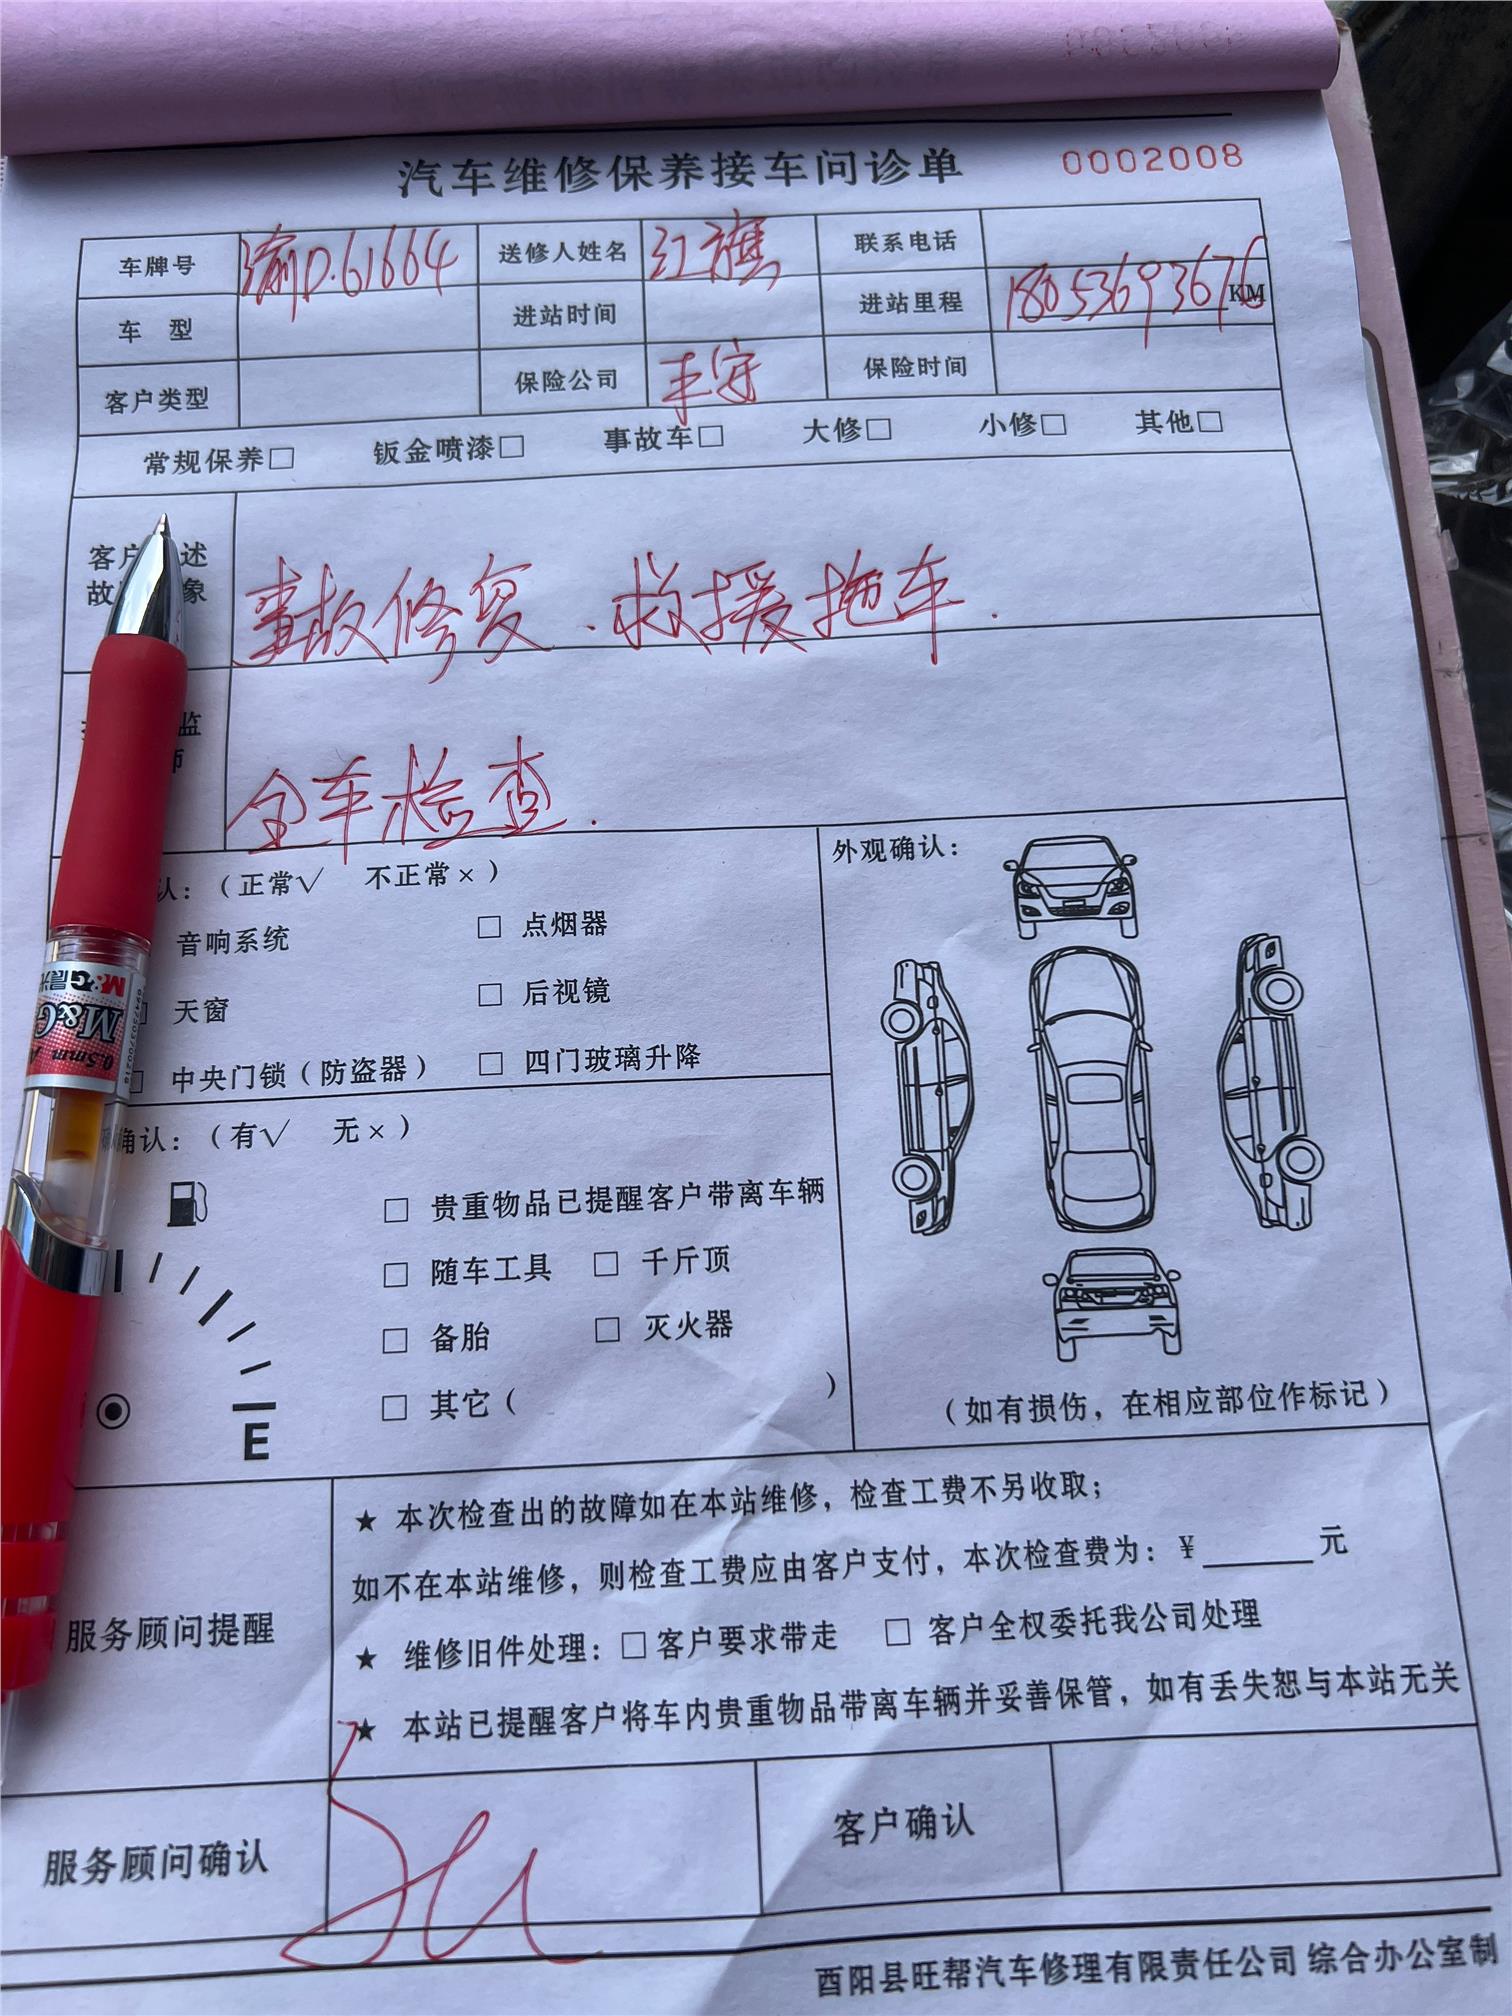 汽车维修保养接车问诊单 0002008
车牌号 渝D.61664 送修人姓名 红旗 联系电话
车 型 进站时间 进站里程 18053693676 KM
客户类型 保险公司 保险时间
常规保养□ 钣金喷漆□ 事故车□ 大修□ 小修□ 其他□
客户 述
故 象
事故修复.救援拖车.
监
师
全车检查.
认：（正常√ 不正常×） 外观确认：
音响系统 □ 点烟器
天窗 □ 后视镜
中央门锁（防盗器） □ 四门玻璃升降
确认：（有√ 无×）
□ 贵重物品已提醒客户带离车辆
□ 随车工具 □ 千斤顶
□ 备胎 □ 灭火器
□ 其它（ ）
E
（如有损伤，在相应部位作标记）
服务顾问提醒
★ 本次检查出的故障如在本站维修，检查工费不另收取；
如不在本站维修，则检查工费应由客户支付，本次检查费为：¥______元
★ 维修旧件处理：□客户要求带走 □ 客户全权委托我公司处理
★ 本站已提醒客户将车内贵重物品带离车辆并妥善保管，如有丢失恕与本站无关
服务顾问确认 客户确认
酉阳县旺帮汽车修理有限责任公司 综合办公室制
M&G
0.5mm